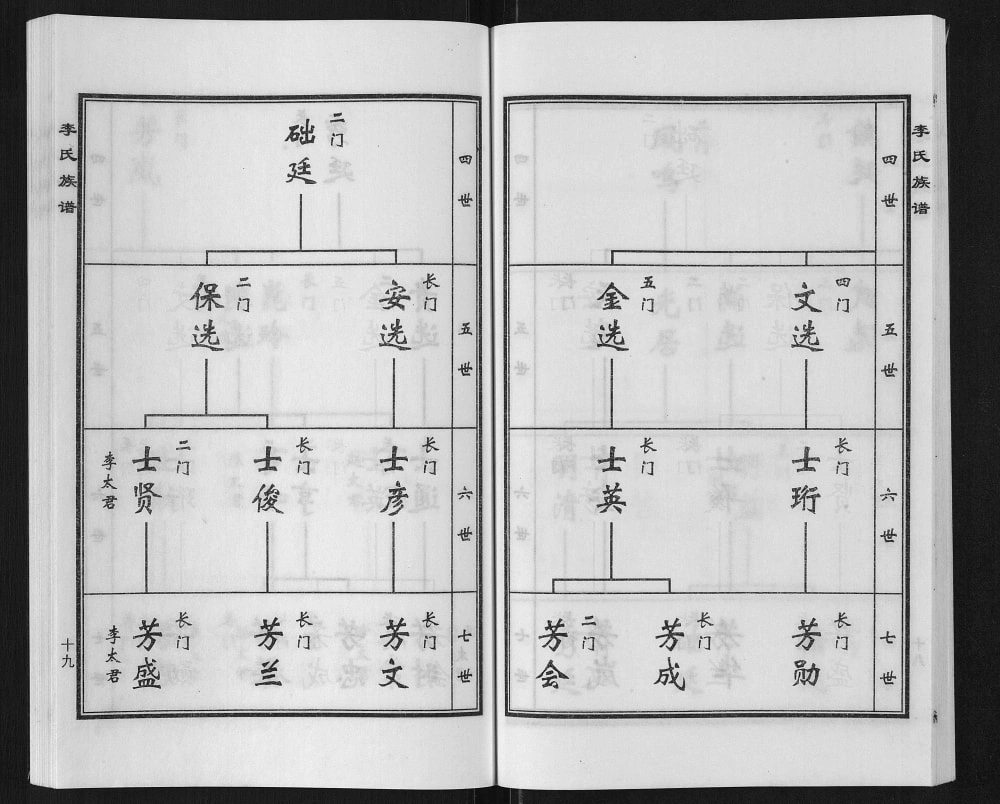 李氏族谱
四世
五世
四门
文选
五门
金选
六世
长门
士珩
长门
士英
七世
长门
芳勋
长门
芳成
二门
芳会
四世
二门
础廷
五世
长门
安选
二门
保选
六世
长门
士彦
长门
士俊
二门
士贤
李太君
七世
长门
芳文
长门
芳兰
长门
芳盛
李太君
李氏族谱
十九